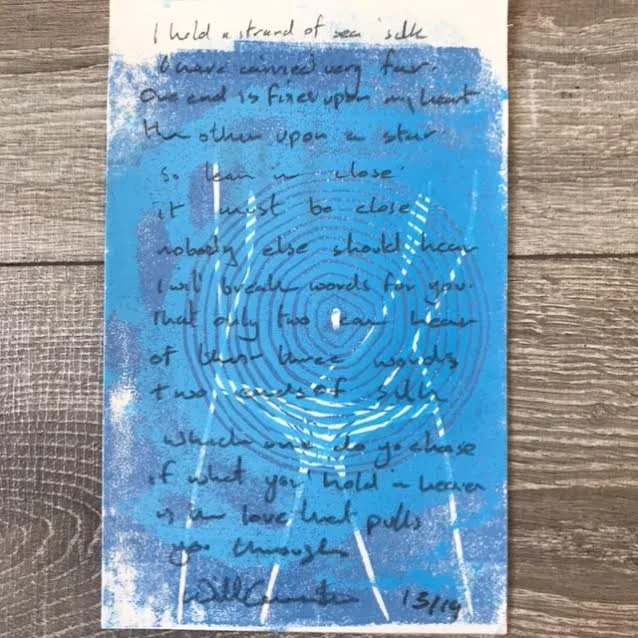 I hold a strand of sea silk
I have carried very far.
One end is fixed upon my heart
the other upon a star.
So lean in close
it must be close
nobody else should hear
I will breath words for you.
That only two can hear
of blest three words
two ends of silk
which one do you chose
if what you hold in heaven
is the love that pulls
you through
13/19